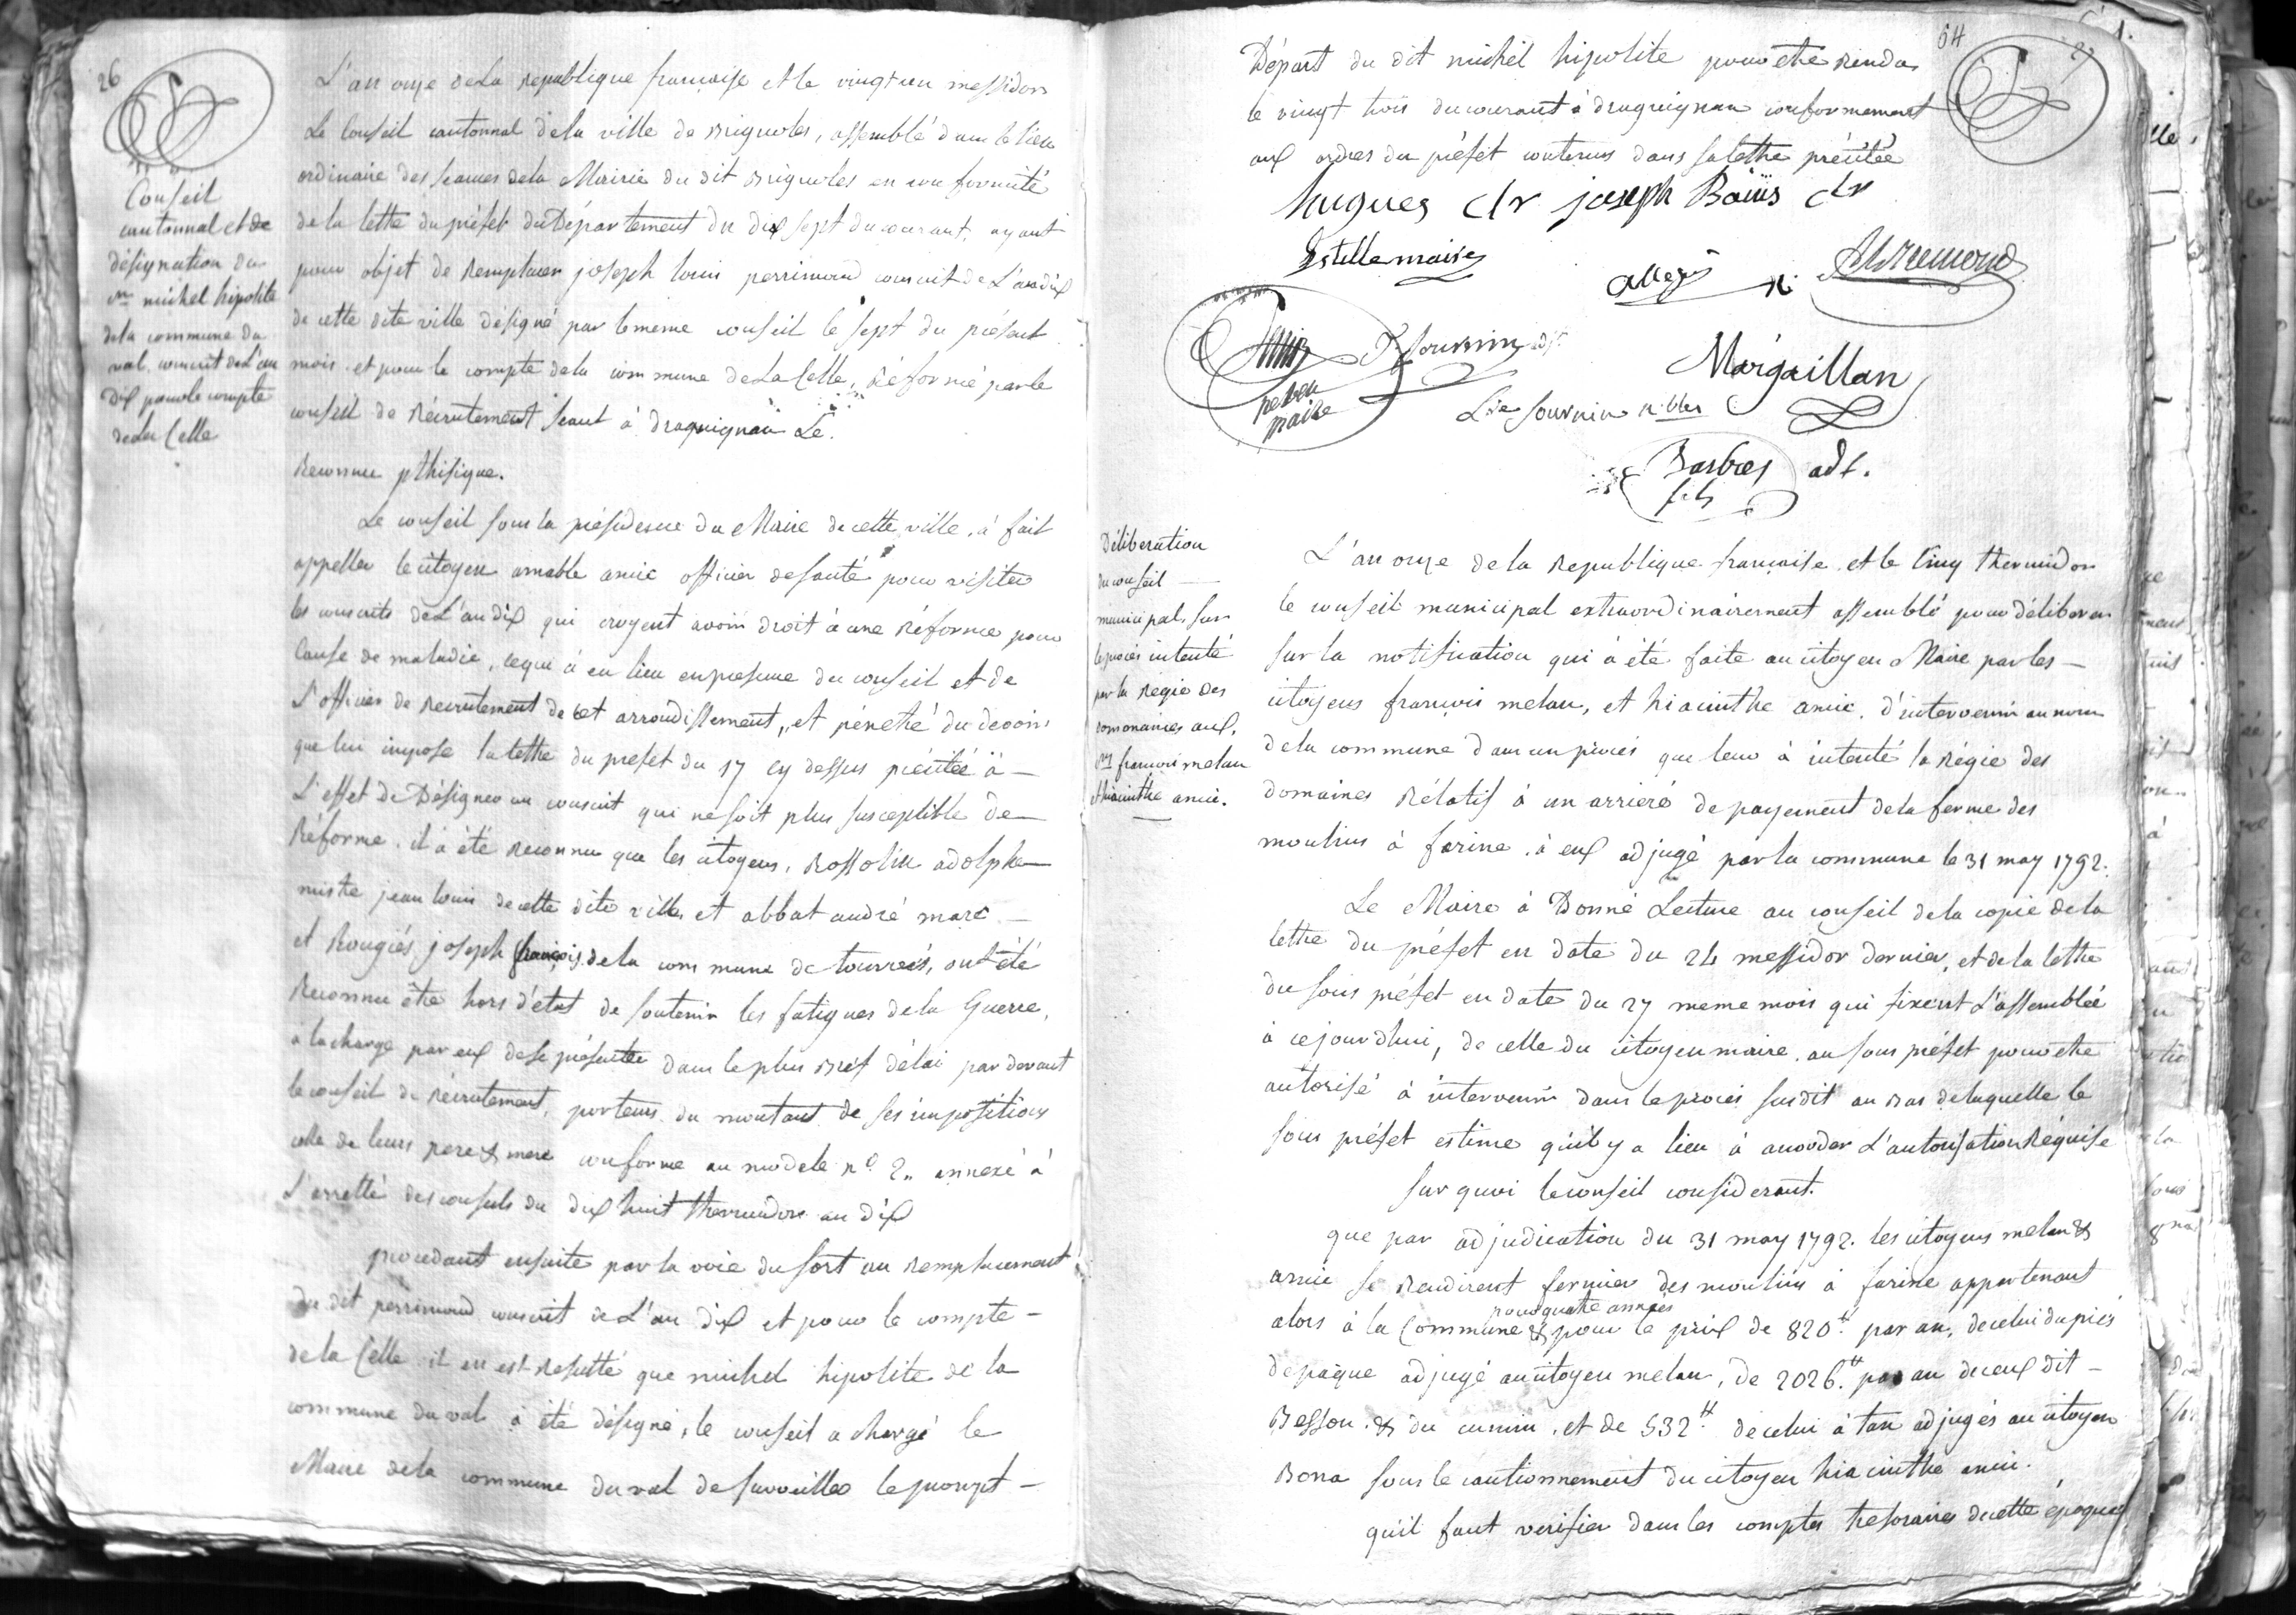 26
Conseil
cantonnal et de
désignation du
cen michel hipolite
de la commune du
val, conscrit de L'an
dix pour le compte
de la Celle
L'an onze de la republique francaise et le vingt un messidor
Le Conseil cantonnal de la ville de Brignoles, assemblé dans le lieu
ordinaire des seances de la Mairie du dit Brignoles en conformité
de la lettre du préfet du Département du dix sept du courant, ayant
pour objet de Remplacer joseph louis perrimond conscrit de L'an dix
de cette dite ville désigné par le meme conseil le sept du présent
mois et pour le compte de la commune de La Celle, Réformé par le
conseil de Récrutement séant à draguignan Le.
Reconnu pthisique.
Le conseil sous la présidence du Maire de cette ville, à fait
appeller le citoyen amable amic officier de santé pour visiter
les conscrits de L'an dix qui croyent avoir droit à une Réforme pour
Cause de maladie, ce qui à eu lieu en presence du conseil et de
L'officier de Recrutement de cet arrondissement, et pénetré du devoir
que lui impose la lettre du prefet du 17 cy dessus précitée à -
L'effet de Désigner un conscrit qui ne soit plus susceptible de -
Réforme. il à été Reconnu que les citoyens, Rossolin adolphe -
mistre jean louis de cette dite ville et abbat andré marc -
et Rougiés joseph françois de la commune de tourvés, ont été
Reconnu être hors d'état de soutenir les fatigues de la Guerre,
a la charge par eux de se présenter dans le plus Bref délai par devant
le conseil de Récrutement, porteurs du montant de ses impositions
celle de leurs pere & mere conforme au modele n.º 2,, annexé à
L'arretté des consuls du dix huit thermidor an dix
procedant ensuite par la voie du sort au Remplacement
du dit perrimond conscrit de L'an dix et pour le compte -
de la Celle il en est Resulté que michel hipolite de la
commune du val à été désigné, le conseil a chargé le
Maire de la commune du val de surveiller le prompt -
64
Départ du dit michel hipolite pour etre Rendu
le vingt trois du courant à draguignan conformement
aux ordres du préfet contenus dans sa lettre précitée
hugues joseph Baïus
Estelle maire
perrin
maire
Margaillan
Barbes adt.
fils
Déliberation
du conseil
municipal, sur
le procès intenté
par la Regie des
domaines aux
cens francois melan
et hiacinthe amic.
L'an onze de la Republique francaise, et le Cinq thermidor
le conseil municipal extraordinairement assemblé pour déliberer
sur la notification qui à été faite au citoyen Maire par les -
citoyens françois melan, et hiacinthe amic, d'intervenir au nom
de la commune dans un procés que leur à intenté la Régie des
domaines Rélatif à un arrieré de payement de la ferme des
moulins à farine, à eux adjugé par la commune le 31 may 1792.
Le Maire à Donné Lecture au conseil de la copie de la
lettre du préfet en date du 24 messidor dernier, et de la lettre
du sous préfet en date du 27 meme mois qui fixent L'assemblée
à ce jourdhui, de celle du citoyen maire, au sous préfet pour etre
autorisé à intervenir dans le procés susdit au Bas de laquelle le
sous préfet estime qu'il y a lieu à accorder L'autorisation Réquise
sur quoi le conseil considerant.
que par adjudication du 31 may 1792. les citoyens melan &
amic se Rendirent fermier des moulins à farine appartenant
pour quatre années
alors à la Commune & pour le prix de 820.tt par an, de celui du prés
de paque adjugé au citoyen melan, de 2026.tt par an de ceux dit -
Besson. & du cumin, et de 532.tt de celui à tan adjugés au citoyen
Bona sous le cautionnement du citoyen hiacinthe amic.
qu'il faut verifier dans les comptes tresoraires de cette époque